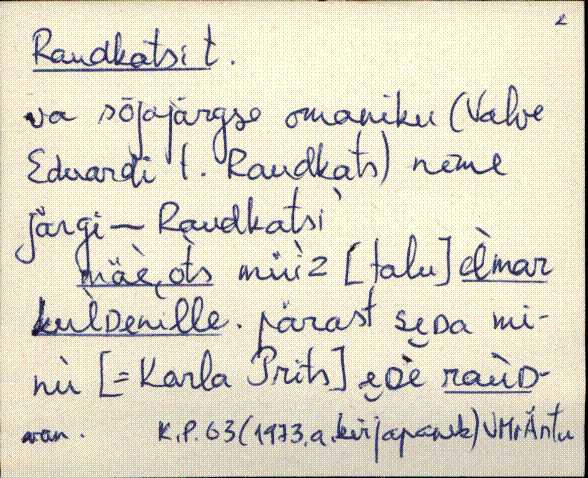 Raudkatsi t.
va sõjajärgse omaniku (Valve
Eduardi t. Raudkats) nime
järgi — Raudkatsi
mäe, òts müi₂ [talu] èlmar
kùlDenìlle. pärast sęDa mi-
nù [= Karla Prits] ęDè raùD-
K.P. 63 (1973.a. kirjapanek) VMr Äntu